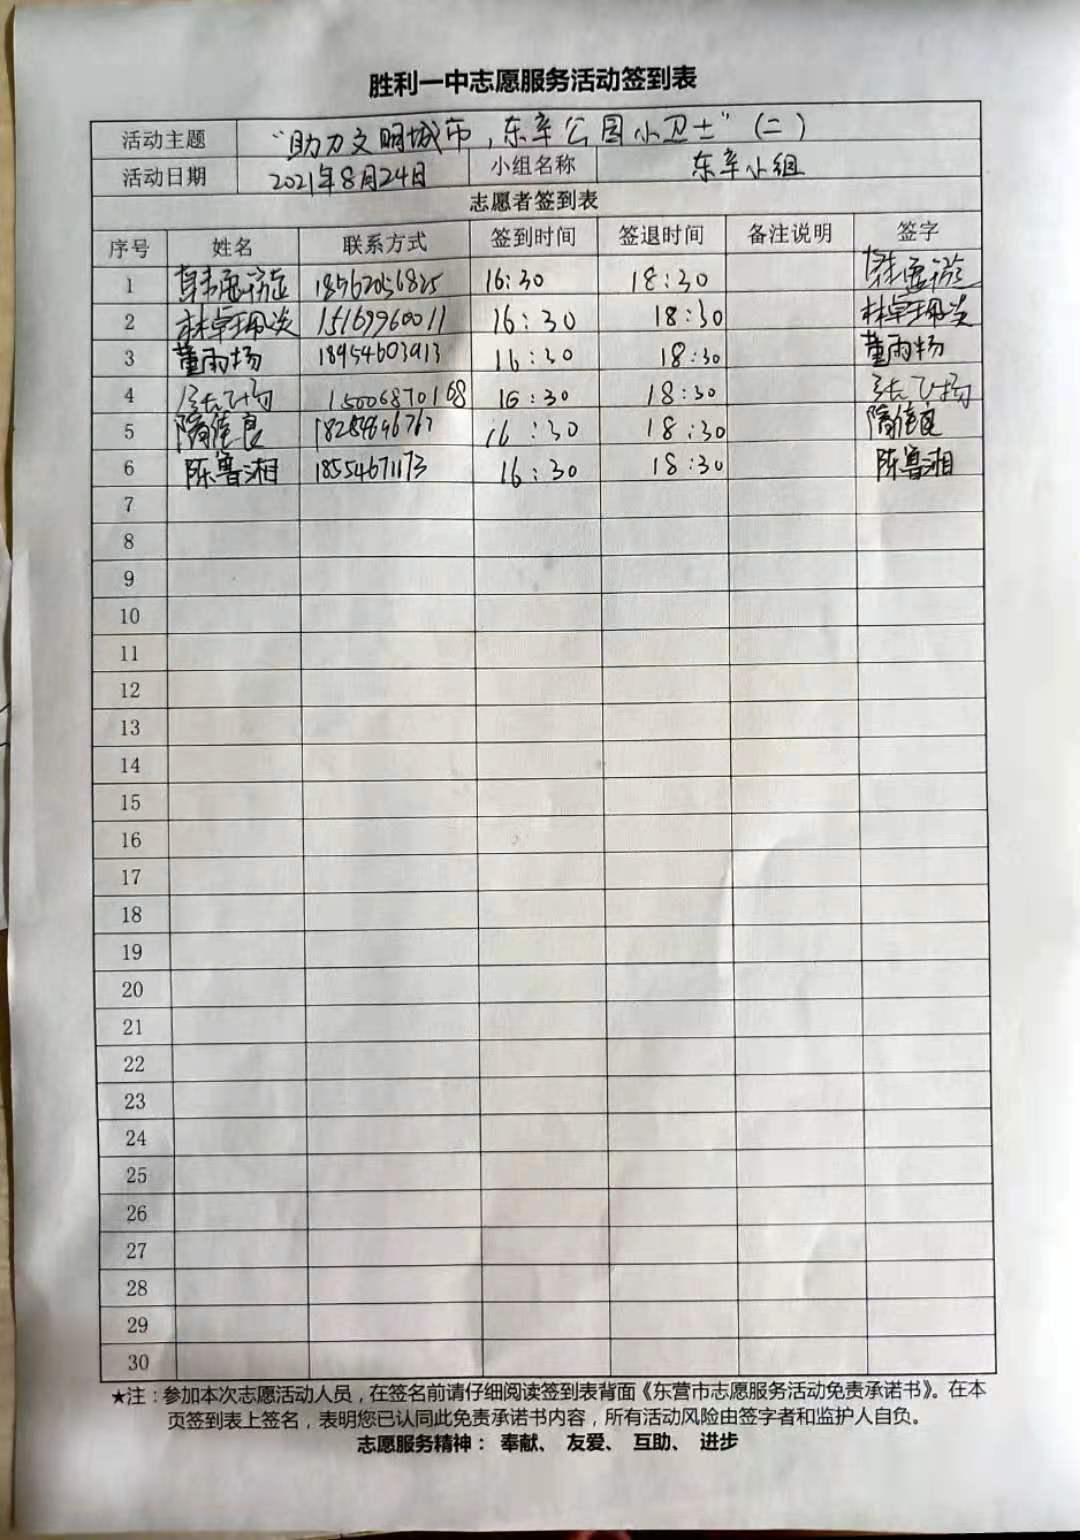 胜利一中志愿服务活动签到表
活动主题 “助力文明城市,东辛公园小卫士”(二)
活动日期 2021年8月24日 小组名称 东辛小组
志愿者签到表
序号 姓名 联系方式 签到时间 签退时间 备注说明 签字
1 16:30 18:30
2 林卓珮炎 15169960011 16:30 18:30 林卓珮炎
3 董雨杨 18954603913 16:30 18:30 董雨杨
4 张飞扬 15006870168 16:30 18:30 张飞扬
5 隋佳良 16:30 18:30 隋佳良
6 陈鲁湘 18554671173 16:30 18:30 陈鲁湘
7
8
9
10
11
12
13
14
15
16
17
18
19
20
21
22
23
24
25
26
27
28
29
30
★注:参加本次志愿活动人员,在签名前请仔细阅读签到表背面《东营市志愿服务活动免责承诺书》。在本
页签到表上签名,表明您已认同此免责承诺书内容,所有活动风险由签字者和监护人自负。
志愿服务精神: 奉献、 友爱、 互助、 进步